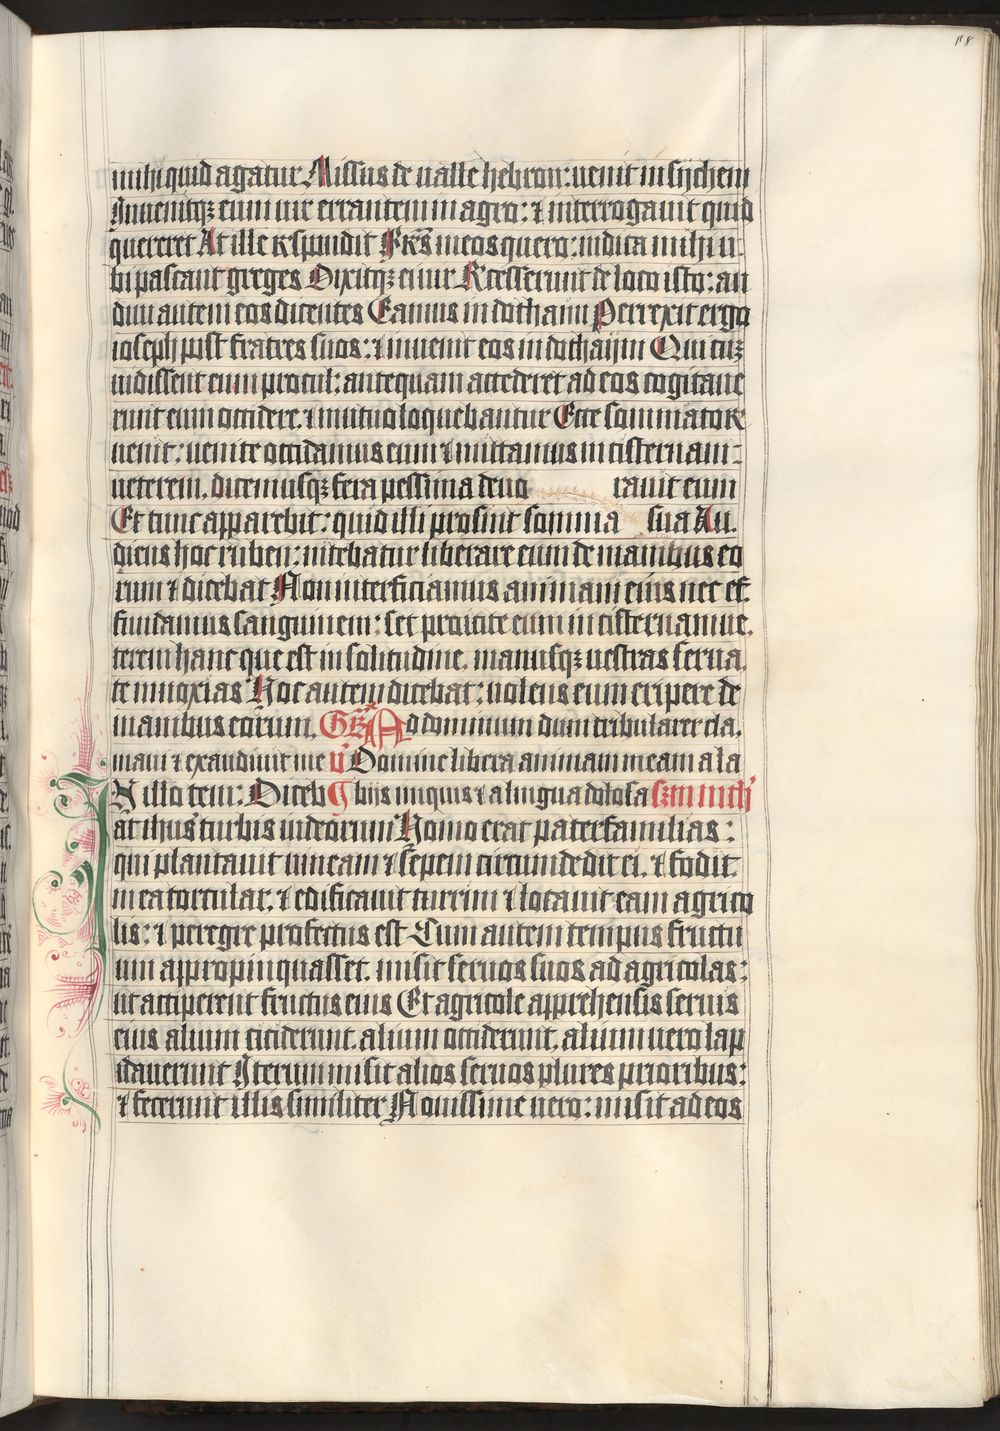 118
mihi quid agatur Missus de ualle hebron: uenit in sichem
Inuenitqꝫ eum uir errantem in agro: ⁊ interrogauit quid
quereret At ille respondit Fr̄es meos quero: indica mihi u
bi pascant greges Dixitqꝫ ei uir Recesserunt de loco isto: au
diui autem eos dicentes Eamus in dothaim Perrexit ergo
ioseph post fratres suos: ⁊ inuenit eos in dothaijm Qui cuꝫ
uidissent eum procul: antequam accederet ad eos cogitaue
runt eum occidere. ⁊ mutuo loquebantur Ecce somniator
uenit: uenite occidamus eum ⁊ mittamus in cisternam
ueterem. dicemusqꝫ fera pessima deuo rauit eum
Et tunc apparebit: quid illi prosint somnia sua Au.
diens hoc ruben: nitebatur liberare eum de manibus eo
rum ⁊ dicebat Non interficiamus animam eius nec ef.
fundamus sanguinem: set proicite eum in cisternam ue.
terem hanc que est in solitudine. manusqꝫ uestras serua.
te innoxias Hoc autem dicebat: uolens eum eripere de
manibus eorum. Gr̄ Ad dominum dum tribularer cla.
maui ⁊ exaudiuit me v̄ Domine libera animam meam a la
N illo tem: Diceb bijs iniquis ⁊ a lingua dolosa scd̄m mth̄
at ihus turbis iudeorum Homo erat paterfamilias:
qui plantauit uineam ⁊ sepem circumdedit ei. ⁊ fodit
in ea torcular. ⁊ edificauit turrim ⁊ locauit eam agrico
lis: ⁊ peregre profectus est Cum autem tempus fructu
um appropinquasset. misit seruos suos ad agricolas:
ut acciperent fructus eius Et agricole apprehensis seruis
eius alium ceciderunt. alium occiderunt. alium uero lap
idauerunt Iterum misit alios seruos plures prioribus:
⁊ fecerunt illis similiter Nouissime uero: misit ad eos